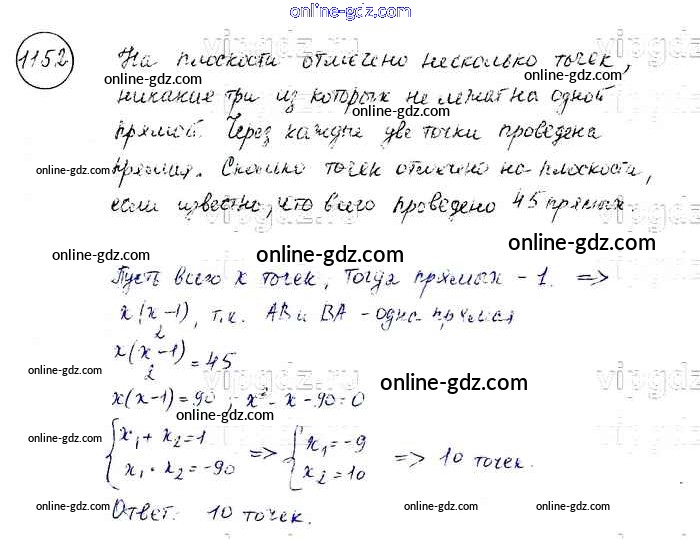 online-gdz.com
1152 На плоскости отмечено несколько точек,
никакие три из которых не лежат на одной
прямой. Через каждые две точки проведена
прямая. Сколько точек отмечено на плоскости,
если известно, что всего проведено 45 прямых.
Пусть всего x точек, тогда прямых - 1. =>
x(x-1)/2, т.к. AB и BA - одна прямая
x(x-1)/2 = 45
x(x-1)=90; x²-x-90=0
{x₁+x₂=1 => {x₁=-9
x₁·x₂=-90 x₂=10 => 10 точек.
Ответ: 10 точек.
online-gdz.com
online-gdz.com
online-gdz.com
online-gdz.com
online-gdz.com
online-gdz.com
online-gdz.com
online-gdz.com
online-gdz.com
online-gdz.com
online-gdz.com
online-gdz.com
online-gdz.com
online-gdz.com